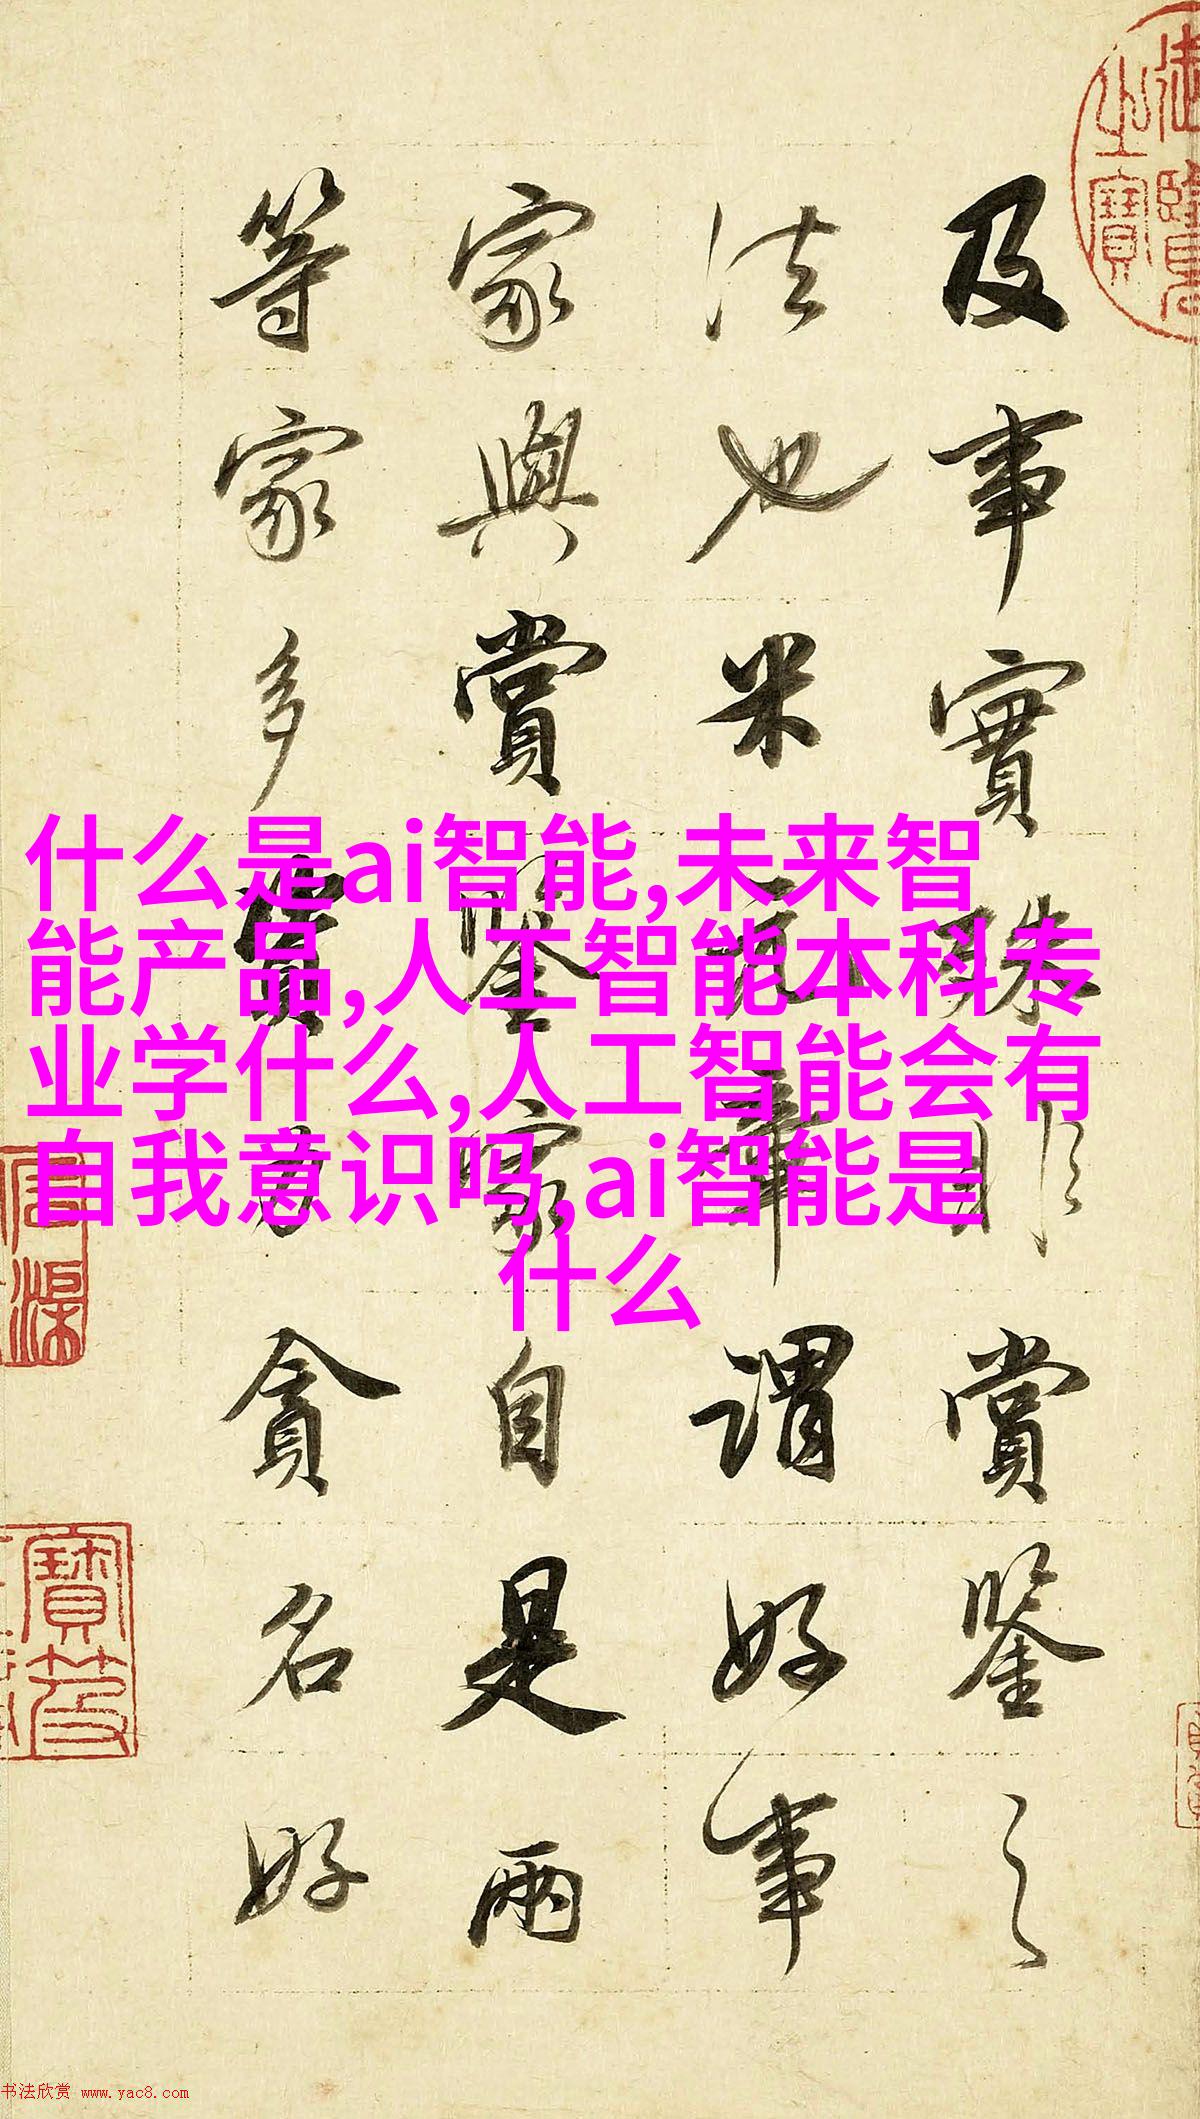 及事實殊非賞鑒之
法也米元章謂好事
家與賞鑒家自是兩
等家多資力貪名好
什么是ai智能,未来智
能产品,人工智能本科专
业学什么,人工智能会有
自我意识吗,ai智能是
什么
书法欣赏 www.yac8.com